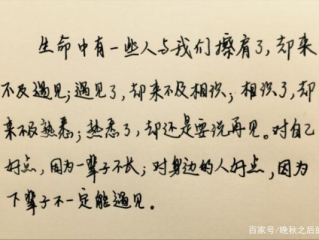 生命中有一些人与我们擦肩了,却来
不及遇见;遇见了,却来不及相识;相识了,却
来不及熟悉;熟悉了,却还是要说再见。对自己
好点,因为一辈子不长;对身边的人好点,因为
下辈子不一定能遇见。
百家号/晚秋之后的